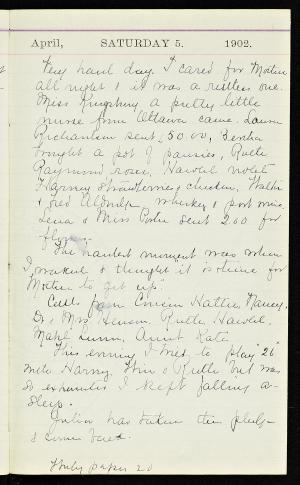 April, SATURDAY 5. 1902.
Very hard day. I cared for Mother
all night & it was a restless one.
Miss Kingsbury a pretty little
nurse from Ottawa came. Laura
Richardson sent 50 00, Bertha
brought a pot of pansies, Ruth
Raymond roses, Hawlet violet
Harney Strawberries & chicken, Walter
& whiskey & port wine,
Lena & Miss Porter sent 2.00 for
The hardest moment was when
I waked & thought it is time for
Mother to get up.
Calls from Cousin Hattie, Nancy,
Dr & Mrs Henson, Ruth, Hawlet,
Mabel Lunn, Aunt Kate
This evening I tried to play "26"
with Harney, Him & Ruth but was
so exhausted I kept falling a-
sleep.
Julia has taken the pledge
Thirty paper 20